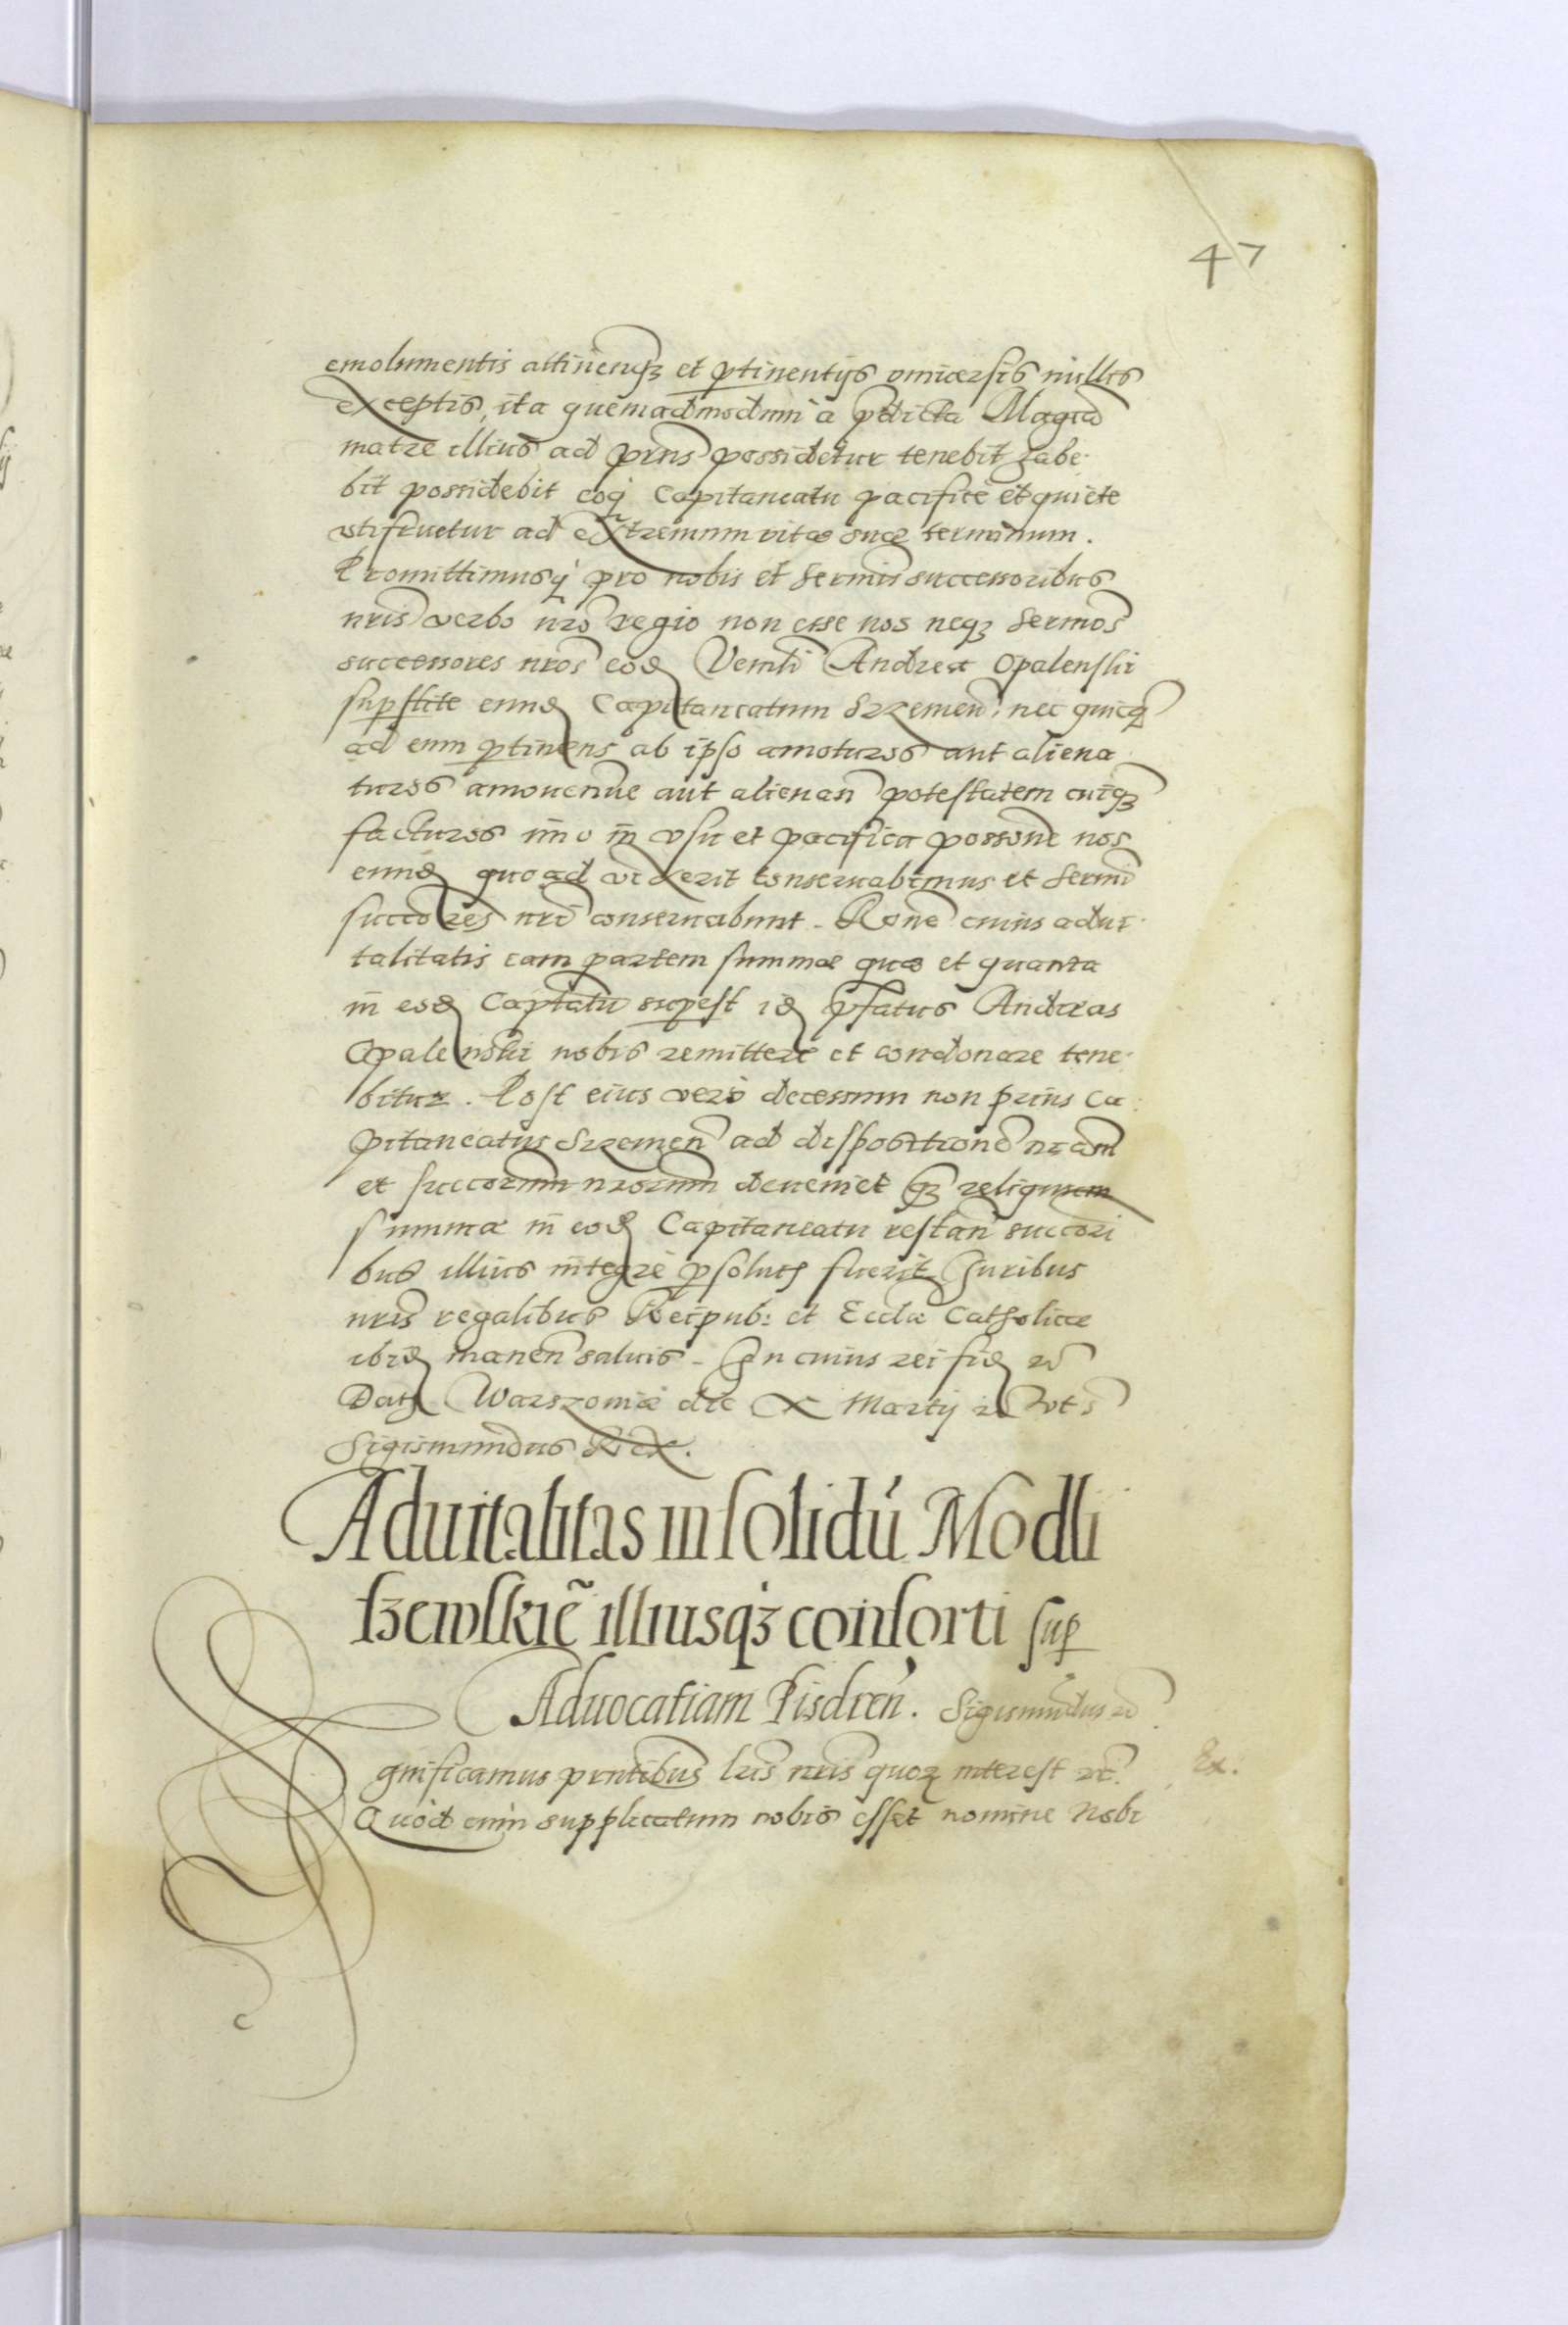 47
emolumentis attinenqȝ et ptinentijs universis nullis
exceptis, ita quemadmodum a pdicta Magca
matre illius ad prns possidetur tenebit habe-
bit possidebit eoq Capitaneatu pacifice et quiete
utifruetur ad extremum vitæ suæ terminum.
Promittimusq pro nobis et Sermis successoribus
nris verbo nro regio non esse nos neqȝ Sermos
successores nros eod Venerli Andrea Opalenski
supstite eund Capitaneatum Srzemen: nec quicq
ad eum ptinens ab ipso amoturos aut aliena
turos amovenve aut alienan potestatem cuiqȝ
facturos imo in usu et pacifica possone nos
eund quoad vixerit conservabimus et Sermi
succores nri conservabunt. Rone cuius advi-
talitatis eam partem summæ quæ et quanta
in eod Captatu supest id pfatus Andreas
Opalenski nobis remittere et condonare tene-
bitur. Post eius vero decessum non prius Ca-
pitaneatus Srzemen ad dispositione nram
et succorum nrorum deveniet qȝ reliquum
summæ in eod Capitaneatu restan succori
bus illius integre psolut fuerit Juribus
nris regalibus Reipub: et Eccla Catholicæ
ibid manen salvis. In cuius rei fid etc
Dat Warszoviæ die X Martij etc ut s
Sigismundus Rex.
Advitalitas in solidu Modli
szewskie illiusqȝ consorti sup
Advocatiam Pisdren. Sigismundus etc
Significamus prntibus lris nris quorȝ interest etc. Ex:
Quod cum supplicatum nobis esset nomine Nobi